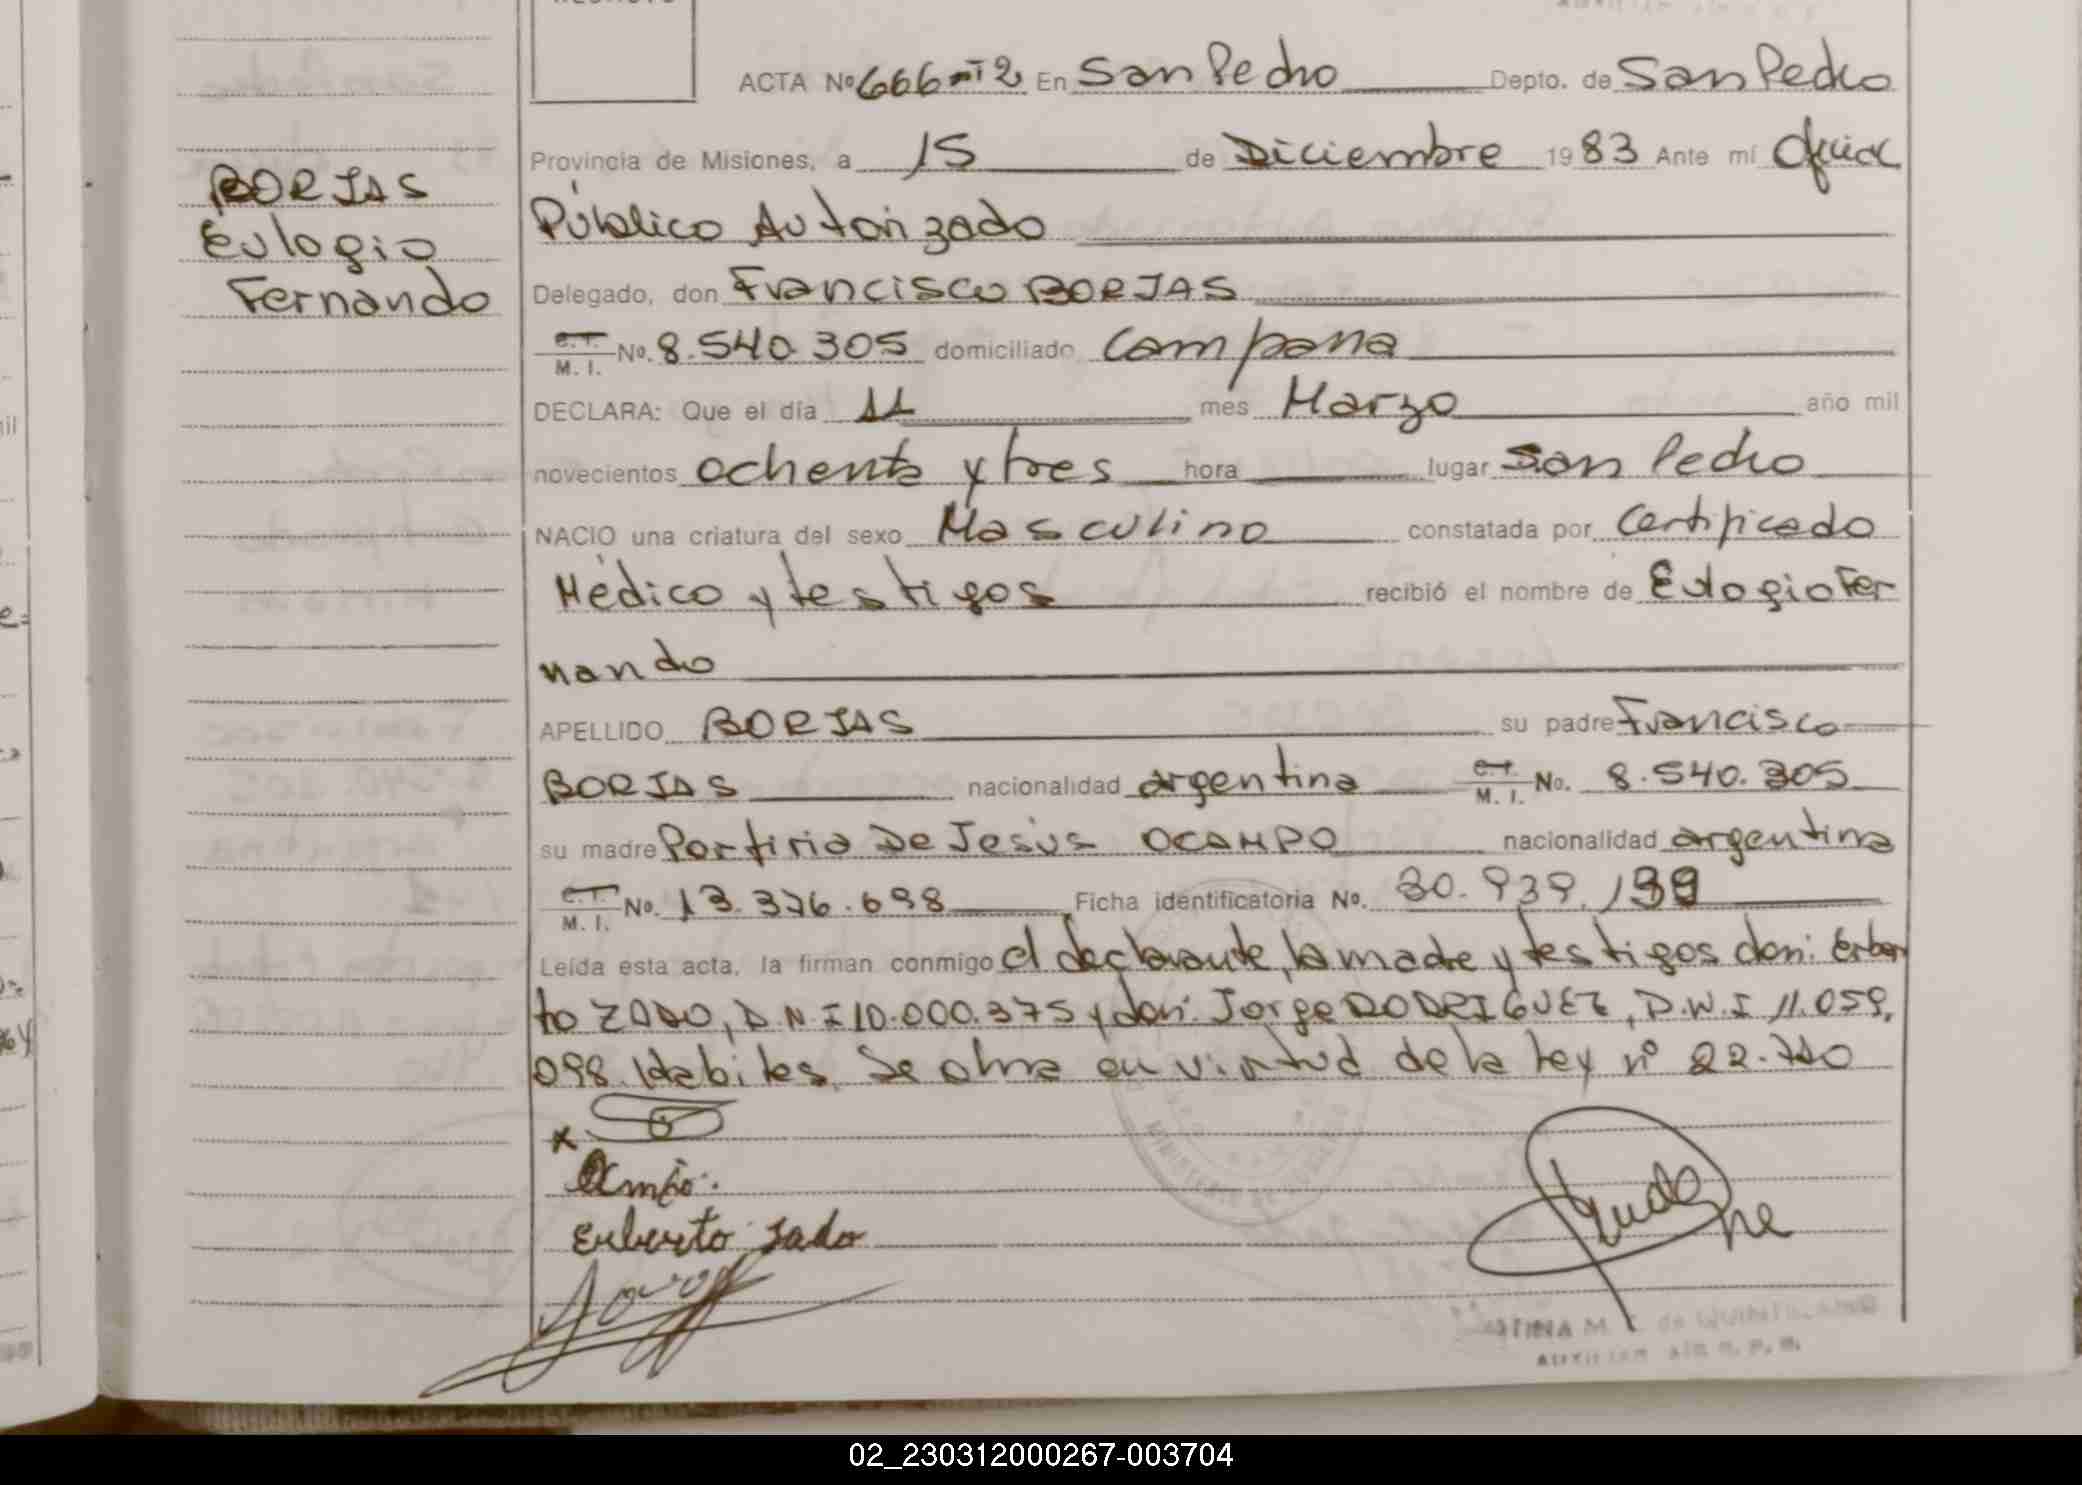 ACTA Nº 666-T2 En San Pedro Depto. de San Pedro
Provincia de Misiones, a 15 de Diciembre 1983 Ante mí
Público Autorizado
Delegado, don Francisco BORJAS
C.I. M. I. No. 8.540.305 domiciliado Campana
DECLARA: Que el día 11 mes Marzo año mil
novecientos ochenta y tres hora lugar San Pedro
NACIO una criatura del sexo Masculino constatada por Certificado
Médico y testigos recibió el nombre de Eulogio Fer
nando
APELLIDO BORJAS su padre Francisco
BORJAS nacionalidad argentina C.I. M. I. No. 8.540.305
su madre Porfiria De Jesús OCAMPO nacionalidad argentina
C.I. M. I. No. 13.376.698 Ficha identificatoria No. 30.939.199
Leída esta acta, la firman conmigo el declarante, la madre y testigos don: Erber
to ZADO, D.N.I 10.000.375 y don: Jorge RODRIGUEZ, D.N.I 11.059.
098. Habiles. Se obra en virtud de la Ley nº
BORJAS
Eulogio
Fernando
x
Erberto Zado
AUXILIAR
02_230312000267-003704